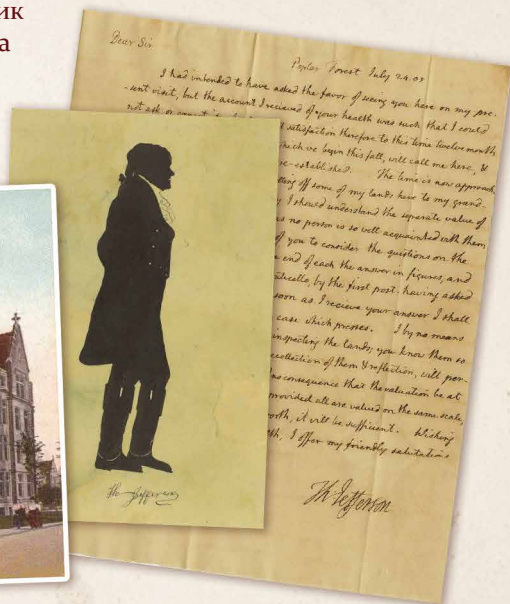 ик
а
Dear Sir
Poplar Forest July 24. 08
I had intended to have asked the favor of seeing you here on my pre-
-sent visit, but the account I recieved of your health was such that I could
not ask or
satisfaction therefore to this time twelvemonth
which we begin this fall, will call me here, &
re-established. The time is now approach
off some of my lands here to my grand-
I should understand the separate value of
no person is so well acquainted with them
of you to consider the questions on the
end of each the answer in figures, and
by the first post. having asked
soon as I recieve your answer I shall
case which presses. I by no means
inspecting the lands; you know them so
recollection of them & reflection, will per-
consequence that the valuation be at
provided all are valued on the same scale,
it will be sufficient. Wishing
I offer my friendly salutations
Th Jefferson
Th Jefferson